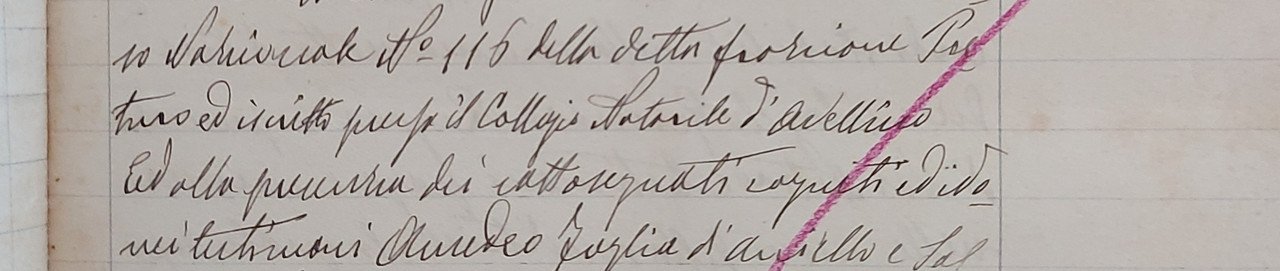 so Nazionale Nº 116 della detta frazione Pas
turo ed iscritto presso il Collegio Notarile d'Avellino
Ed alla presenza dei sottosegnati cogniti ed ido_
nei testimoni Amedeo Foglia d'Aniello e Sal